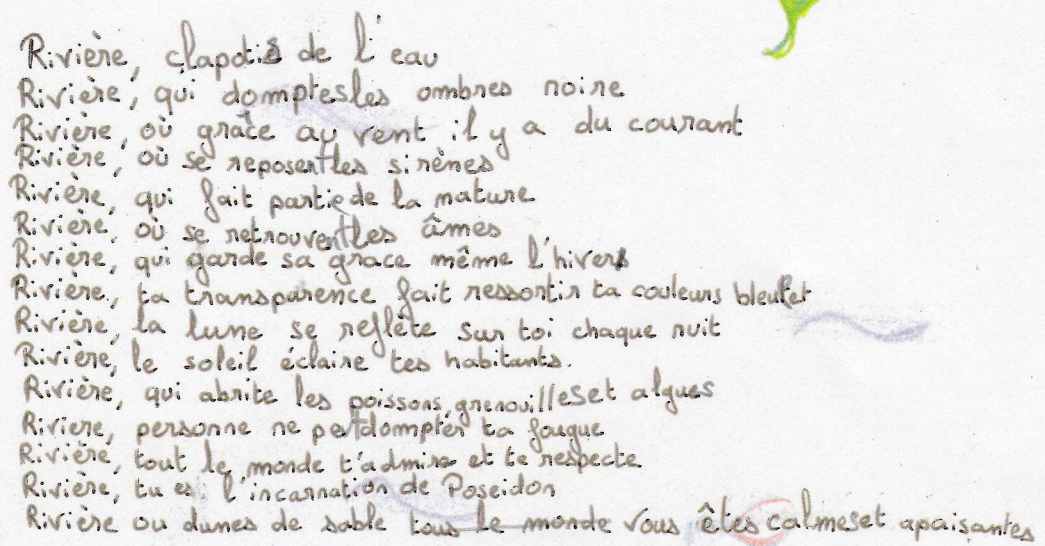 Rivière, clapotis de l'eau
Rivière, qui domptes les ombres noire
Rivière, où grâce au vent il y a du courant
Rivière, où se reposent les sirènes
Rivière, qui fait partie de la nature
Rivière, où se retrouvent les âmes
Rivière, qui garde sa grace même l'hiver
Rivière, ta transparence fait ressortir ta couleurs
Rivière, la lune se reflète sur toi chaque nuit
Rivière, le soleil éclaire tes habitants.
Rivière, qui abrite les poissons, grenouilles et algues
Riviere, personne ne pet dompter ta fougue
Rivière, tout le monde t'admire et te respecte
Rivière, tu es l'incarnation de Poseidon
Rivière ou dunes de sable tous le monde vous êtes calmes et apaisantes